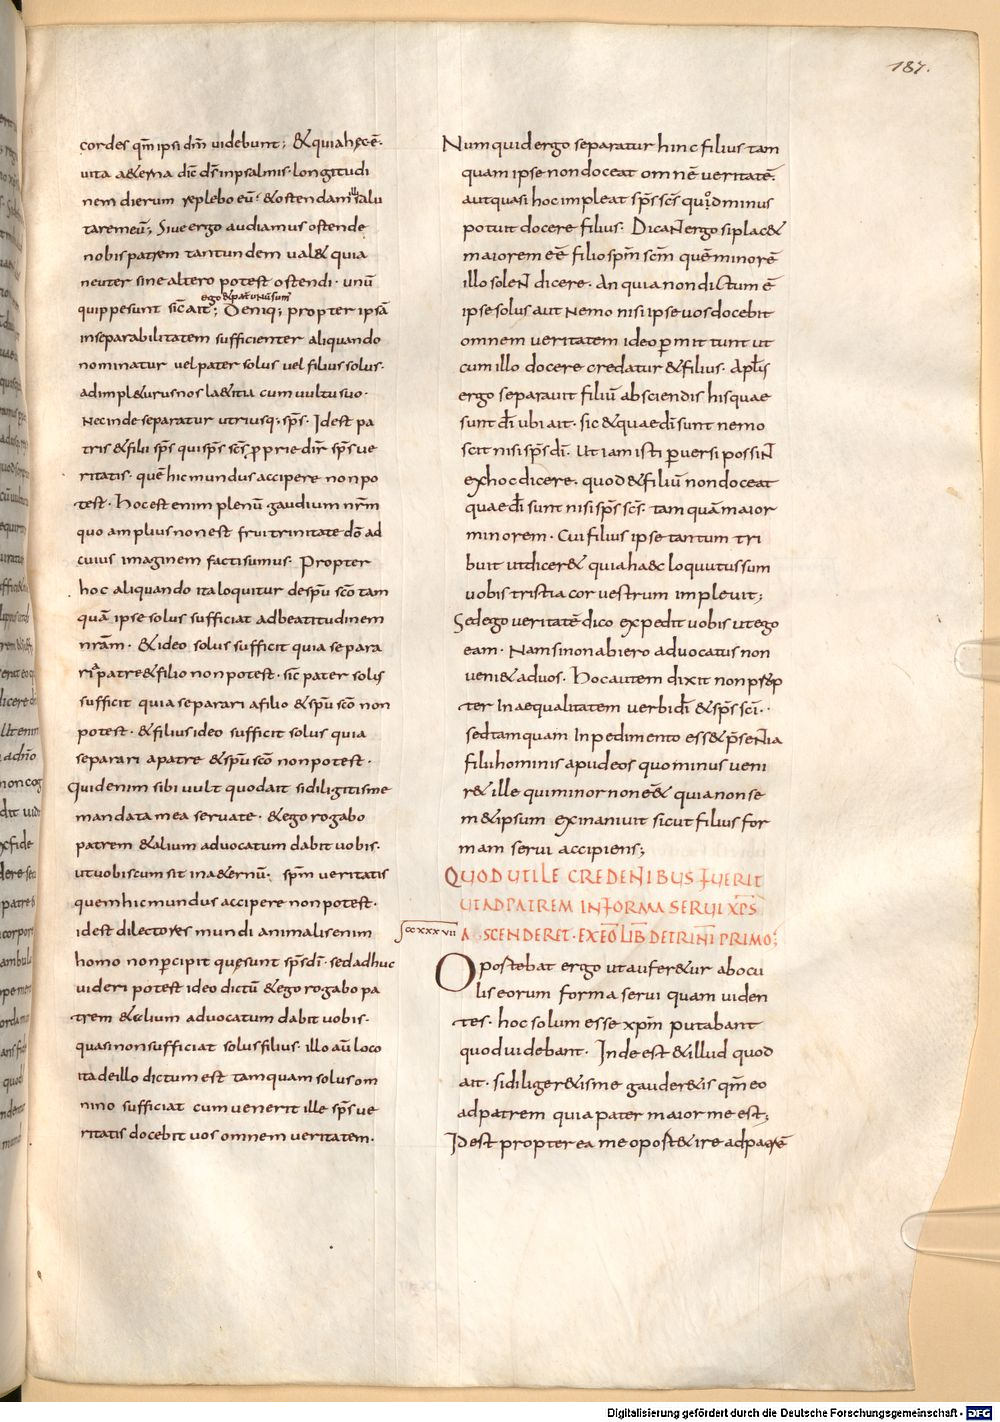 187.
cordes qm̄ ipsi dm̄ videbunt; & quia hęc ē·
vita a&erna dic̄ ds̄ in psalmis· longitudi
nem dierum replebo eū· & ostendam salu
tare meū; Sive ergo audiamus ostende
nobis patrem tantundem val& quia
neuter sine altero potest ostendi· unū
ego & pater unū sum
quippe sunt sic̄ ait; Deniq; propter ipsā
inseparabilitatem sufficienter aliquando
nominatur vel pater solus vel filius solus·
adimpl&urus nos la&itia cum vultu suo·
Nec inde separatur utriusq; sps̄· Id est pa
tris & filii sps̄ qui sps̄ scs̄ proprie dir̄ sps̄ ve
ritatis· quē hic mundus accipere non po
test· Hoc est enim plenū gaudium nrm̄
quo amplius non est frui trinitate dō ad
cuius imaginem facti sumus· Propter
hoc aliquando ita loquitur de spū scō tam
quā ipse solus sufficiat ad beatitudinem
nrām· & ideo solus sufficit quia separa
ri a patre & filio non potest· sic̄ pater solus
sufficit quia separari a filio & spū scō non
potest· & filius ideo sufficit solus quia
separari a patre & spū scō non potest·
Quid enim sibi vult quod ait si diligitis me
mandata mea servate· & ego rogabo
patrem & alium advocatum dabit vobis·
ut vobiscum sit in a&ernū· spm̄ veritatis
quem hic mundus accipere non potest·
id est dilectores mundi animalis enim
homo non percipit quę sunt sps̄ dī· sed adhuc
videri potest ideo dictū & ego rogabo pa
trem & alium advocatum dabit vobis·
quasi non sufficiat solus filius· illo aū loco
ita de illo dictum est tamquam solus om
nino sufficiat cum venerit ille sps̄ ve
ritatis docebit vos omnem veritatem·
Numquid ergo separatur hinc filius tam
quam ipse non doceat omnē veritatē·
aut quasi hoc impleat sps̄ scs̄ quod minus
potuit docere filius· Dicant ergo si plac&
maiorem eē filio spm̄ scm̄ quē minorē
illo solent dicere· An quia non dictum ē
ipse solus aut nemo nisi ipse vos docebit
omnem veritatem ideo permittunt ut
cum illo docere credatur & filius· Aplūs
ergo separavit filiū ab sciendis his quae
sunt dī ubi ait· sic & quae dī sunt nemo
scit nisi sps̄ dī· Ut iam isti perversi possint
ex hoc dicere· quod & filiū non doceat
quae dī sunt nisi sps̄ scs̄· tamquā maior
minorem· Cui filius ipse tantum tri
buit ut dicer& quia haec loquutus sum
vobis tristia cor vestrum implevit;
Sed ego veritatē dico expedit vobis ut ego
eam· Nam si non abiero advocatus non
veni& ad vos· Hoc autem dixit non prop
ter inaequalitatem verbi dī & sps̄ scī··
sed tamquam inpedimento ess& p̄sentia
filii hominis apud eos quo minus veni
r& ille qui minor non ē& quia non se
m&ipsum exinanivit sicut filius for
mam servi accipiens;
QUOD UTILE CREDENTIBUS FUERIT
UT AD PATREM IN FORMA SERVI XPS̄
ccxxxvii ASCENDERET· EX EŌ LIB̄ DE TRINĪ PRIMO;
Oportebat ergo ut aufer&ur ab ocu
lis eorum forma servi quam viden
tes· hoc solum esse xpm̄ putabant
quod videbant· Inde est & illud quod
ait· si diliger&is me gauder&is qm̄ eo
ad patrem quia pater maior me est;
Id est propterea me oport& ire ad patrē
Digitalisierung gefördert durch die Deutsche Forschungsgemeinschaft - DFG